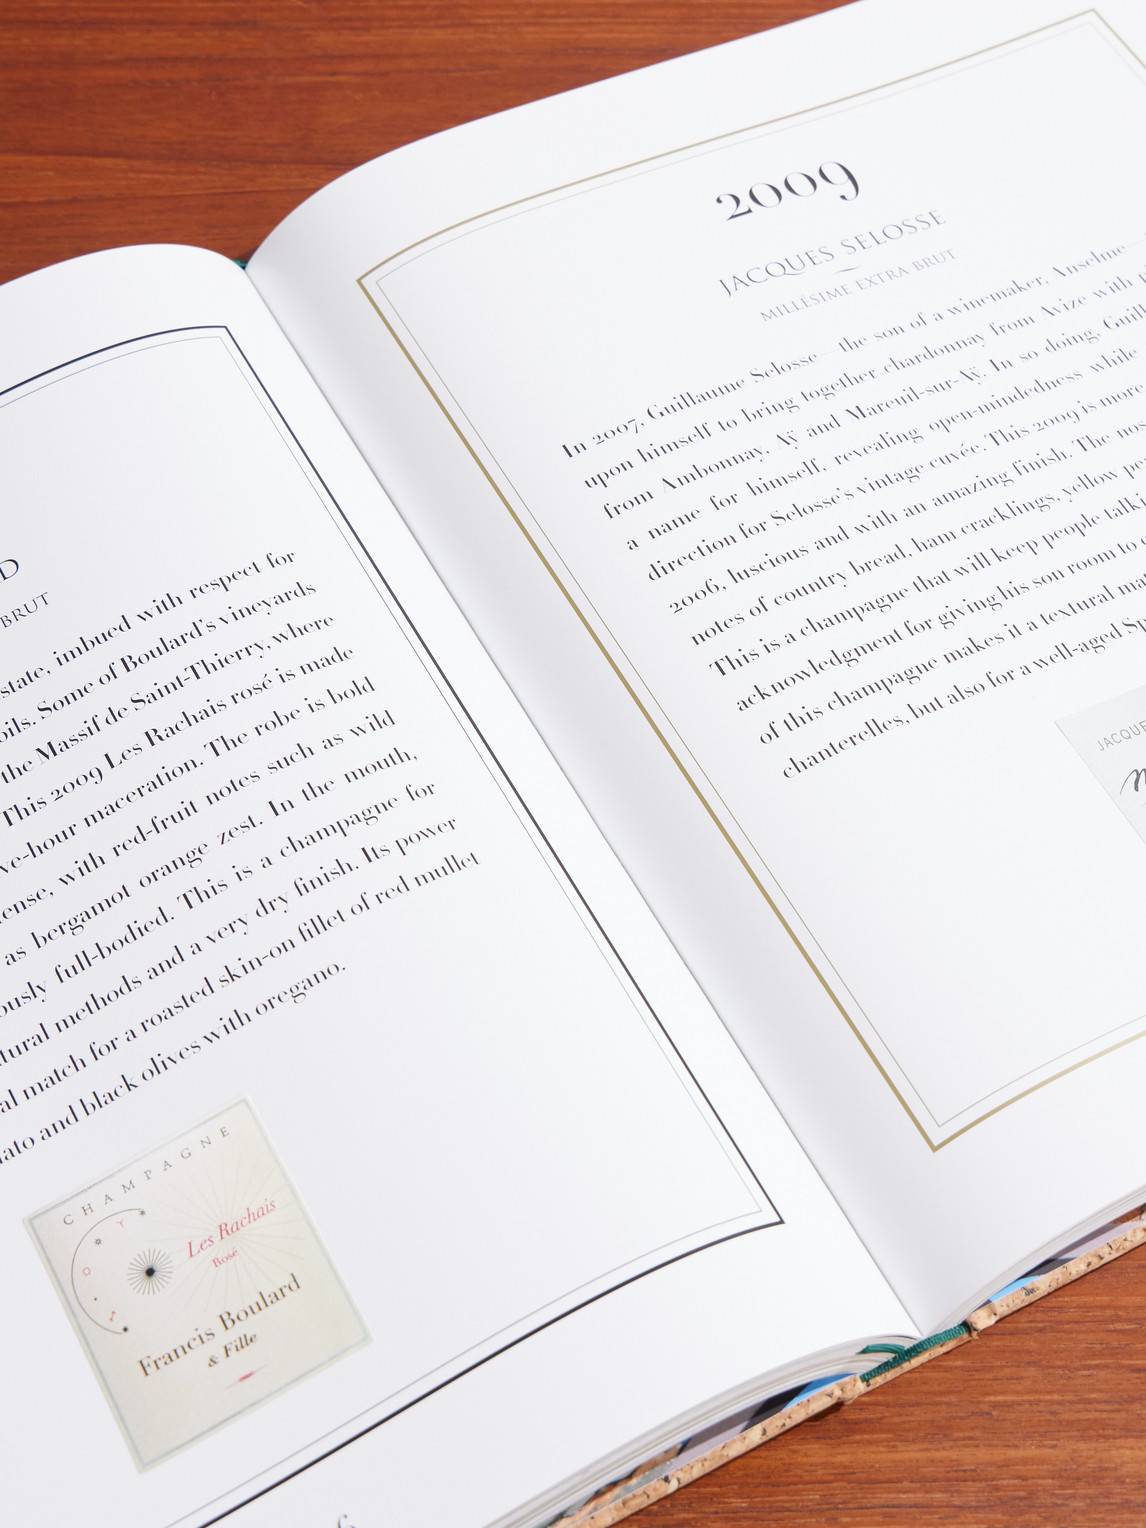 D
BRUT
state, imbued with respect for
oils. Some of Boulard's vineyards
the Massif de Saint-Thierry, where
This 2009 Les Rachais rosé is made
ve-hour maceration. The robe is bold
ense, with red-fruit notes such as wild
as bergamot orange zest. In the mouth,
ously full-bodied. This is a champagne for
tural methods and a very dry finish. Its power
al match for a roasted skin-on fillet of red mullet
ato and black olives with oregano.
CHAMPAGNE
Les Rachais
Rosé
Francis Boulard
& Fille
2009
JACQUES SELOSSE
MILLÉSIME EXTRA BRUT
In 2007, Guillaume Selosse—the son of a winemaker, Anselme—
upon himself to bring together chardonnay from Avize with
from Ambonnay, Aÿ and Mareuil-sur-Aÿ. In so doing, Guill
a name for himself, revealing open-mindedness while
direction for Selosse's vintage cuvée. This 2009 is more
2006, luscious and with an amazing finish. The nos
notes of country bread, ham cracklings, yellow pe
This is a champagne that will keep people talki
acknowledgment for giving his son room to
of this champagne makes it a textural mat
chanterelles, but also for a well-aged Sp
JACQUE